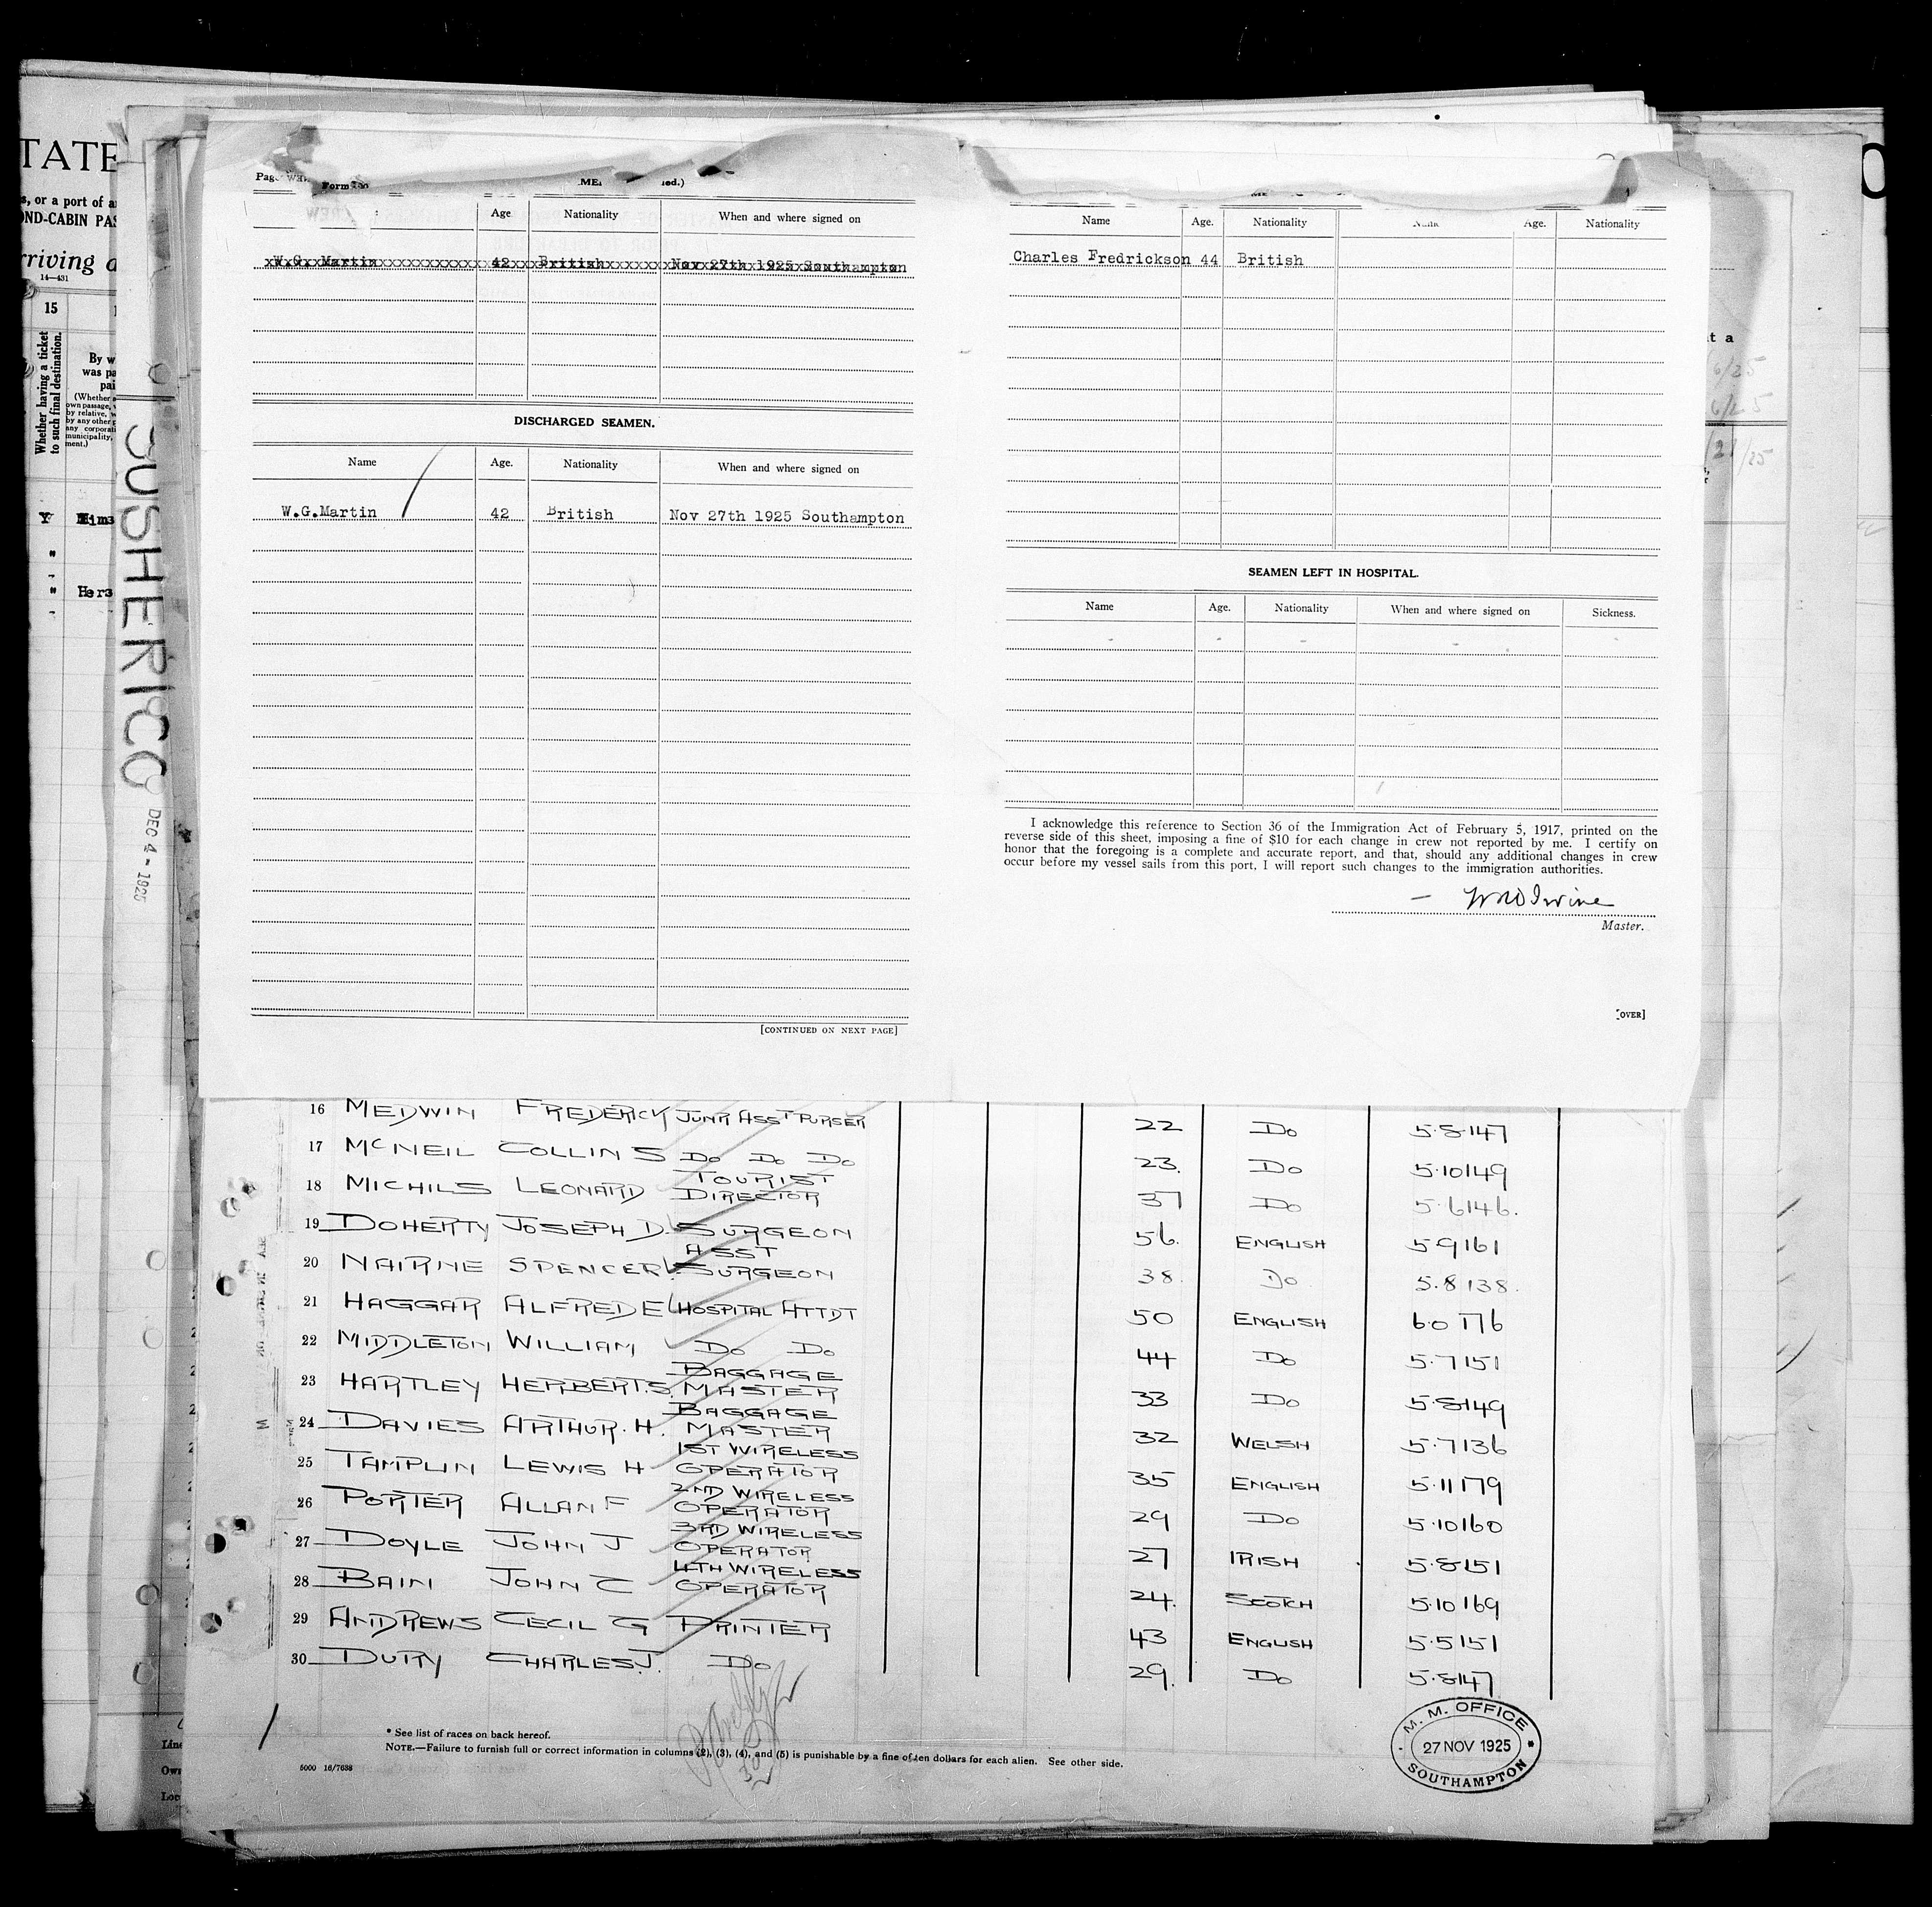 TATE
s, or a port of a
OND-CABIN PAS
rriving a
14—431
15
Whether having a ticket
to such final destination.
By w
was pa
pai
(Whether
own passage,
by relative, w
by any other p
any corporati
municipality,
ment.)
Y
"
" Hers
DEC 4 - 1925
Form
ed.)
Age Nationality When and where signed on
W.G. Martin 42 British Nov 27th 1925 Southampton
DISCHARGED SEAMEN.
Name Age. Nationality When and where signed on
W.G.Martin 42 British Nov 27th 1925 Southampton
[CONTINUED ON NEXT PAGE]
Name Age. Nationality Age. Nationality
Charles Fredrickson 44 British
SEAMEN LEFT IN HOSPITAL.
Name Age. Nationality When and where signed on Sickness.
- - - - -
I acknowledge this reference to Section 36 of the Immigration Act of February 5, 1917, printed on the
reverse side of this sheet, imposing a fine of $10 for each change in crew not reported by me. I certify on
honor that the foregoing is a complete and accurate report, and that, should any additional changes in crew
occur before my vessel sails from this port, I will report such changes to the immigration authorities.
Irvine
Master.
[OVER]
16 MEDWIN FREDERICK JUNR ASST PURSER 22 DO 5·8 147
17 MCNEIL COLLIN S DO DO DO 23. DO 5·10 149
18 MICHILS LEONARD TOURIST DIRECTOR 37 DO 5·6 146.
19 DOHERTY JOSEPH D. SURGEON 56. ENGLISH 5·9 161
20 NAIRNE SPENCER ASST SURGEON 38. DO 5·8 138.
21 HAGGAR ALFRED E HOSPITAL ATTDT 50 ENGLISH 6·0 176
22 MIDDLETON WILLIAM DO DO 44 DO 5·7 151
23 HARTLEY HERBERT.S. BAGGAGE MASTER 33 DO 5·8 149
24 DAVIES ARTHUR.H. BAGGAGE MASTER 32 WELSH 5·7 136
25 TAMPLIN LEWIS H 1ST WIRELESS OPERATOR 35 ENGLISH 5·11 179
26 PORTER ALLAN F 2ND WIRELESS OPERATOR 29 DO 5·10 160
27 DOYLE JOHN J 3RD WIRELESS OPERATOR 27 IRISH 5·8 151
28 BAIN JOHN C 4TH WIRELESS OPERATOR 24. SCOTCH 5·10 169
29 ANDREWS CECIL G PRINTER 43 ENGLISH 5·5 151
30 DURY CHARLES.J. DO 29. DO 5·8 147
* See list of races on back hereof.
NOTE.—Failure to furnish full or correct information in columns (2), (3), (4), and (5) is punishable by a fine of ten dollars for each alien. See other side.
5000 16/7638
M. M. OFFICE
27 NOV 1925
SOUTHAMPTON